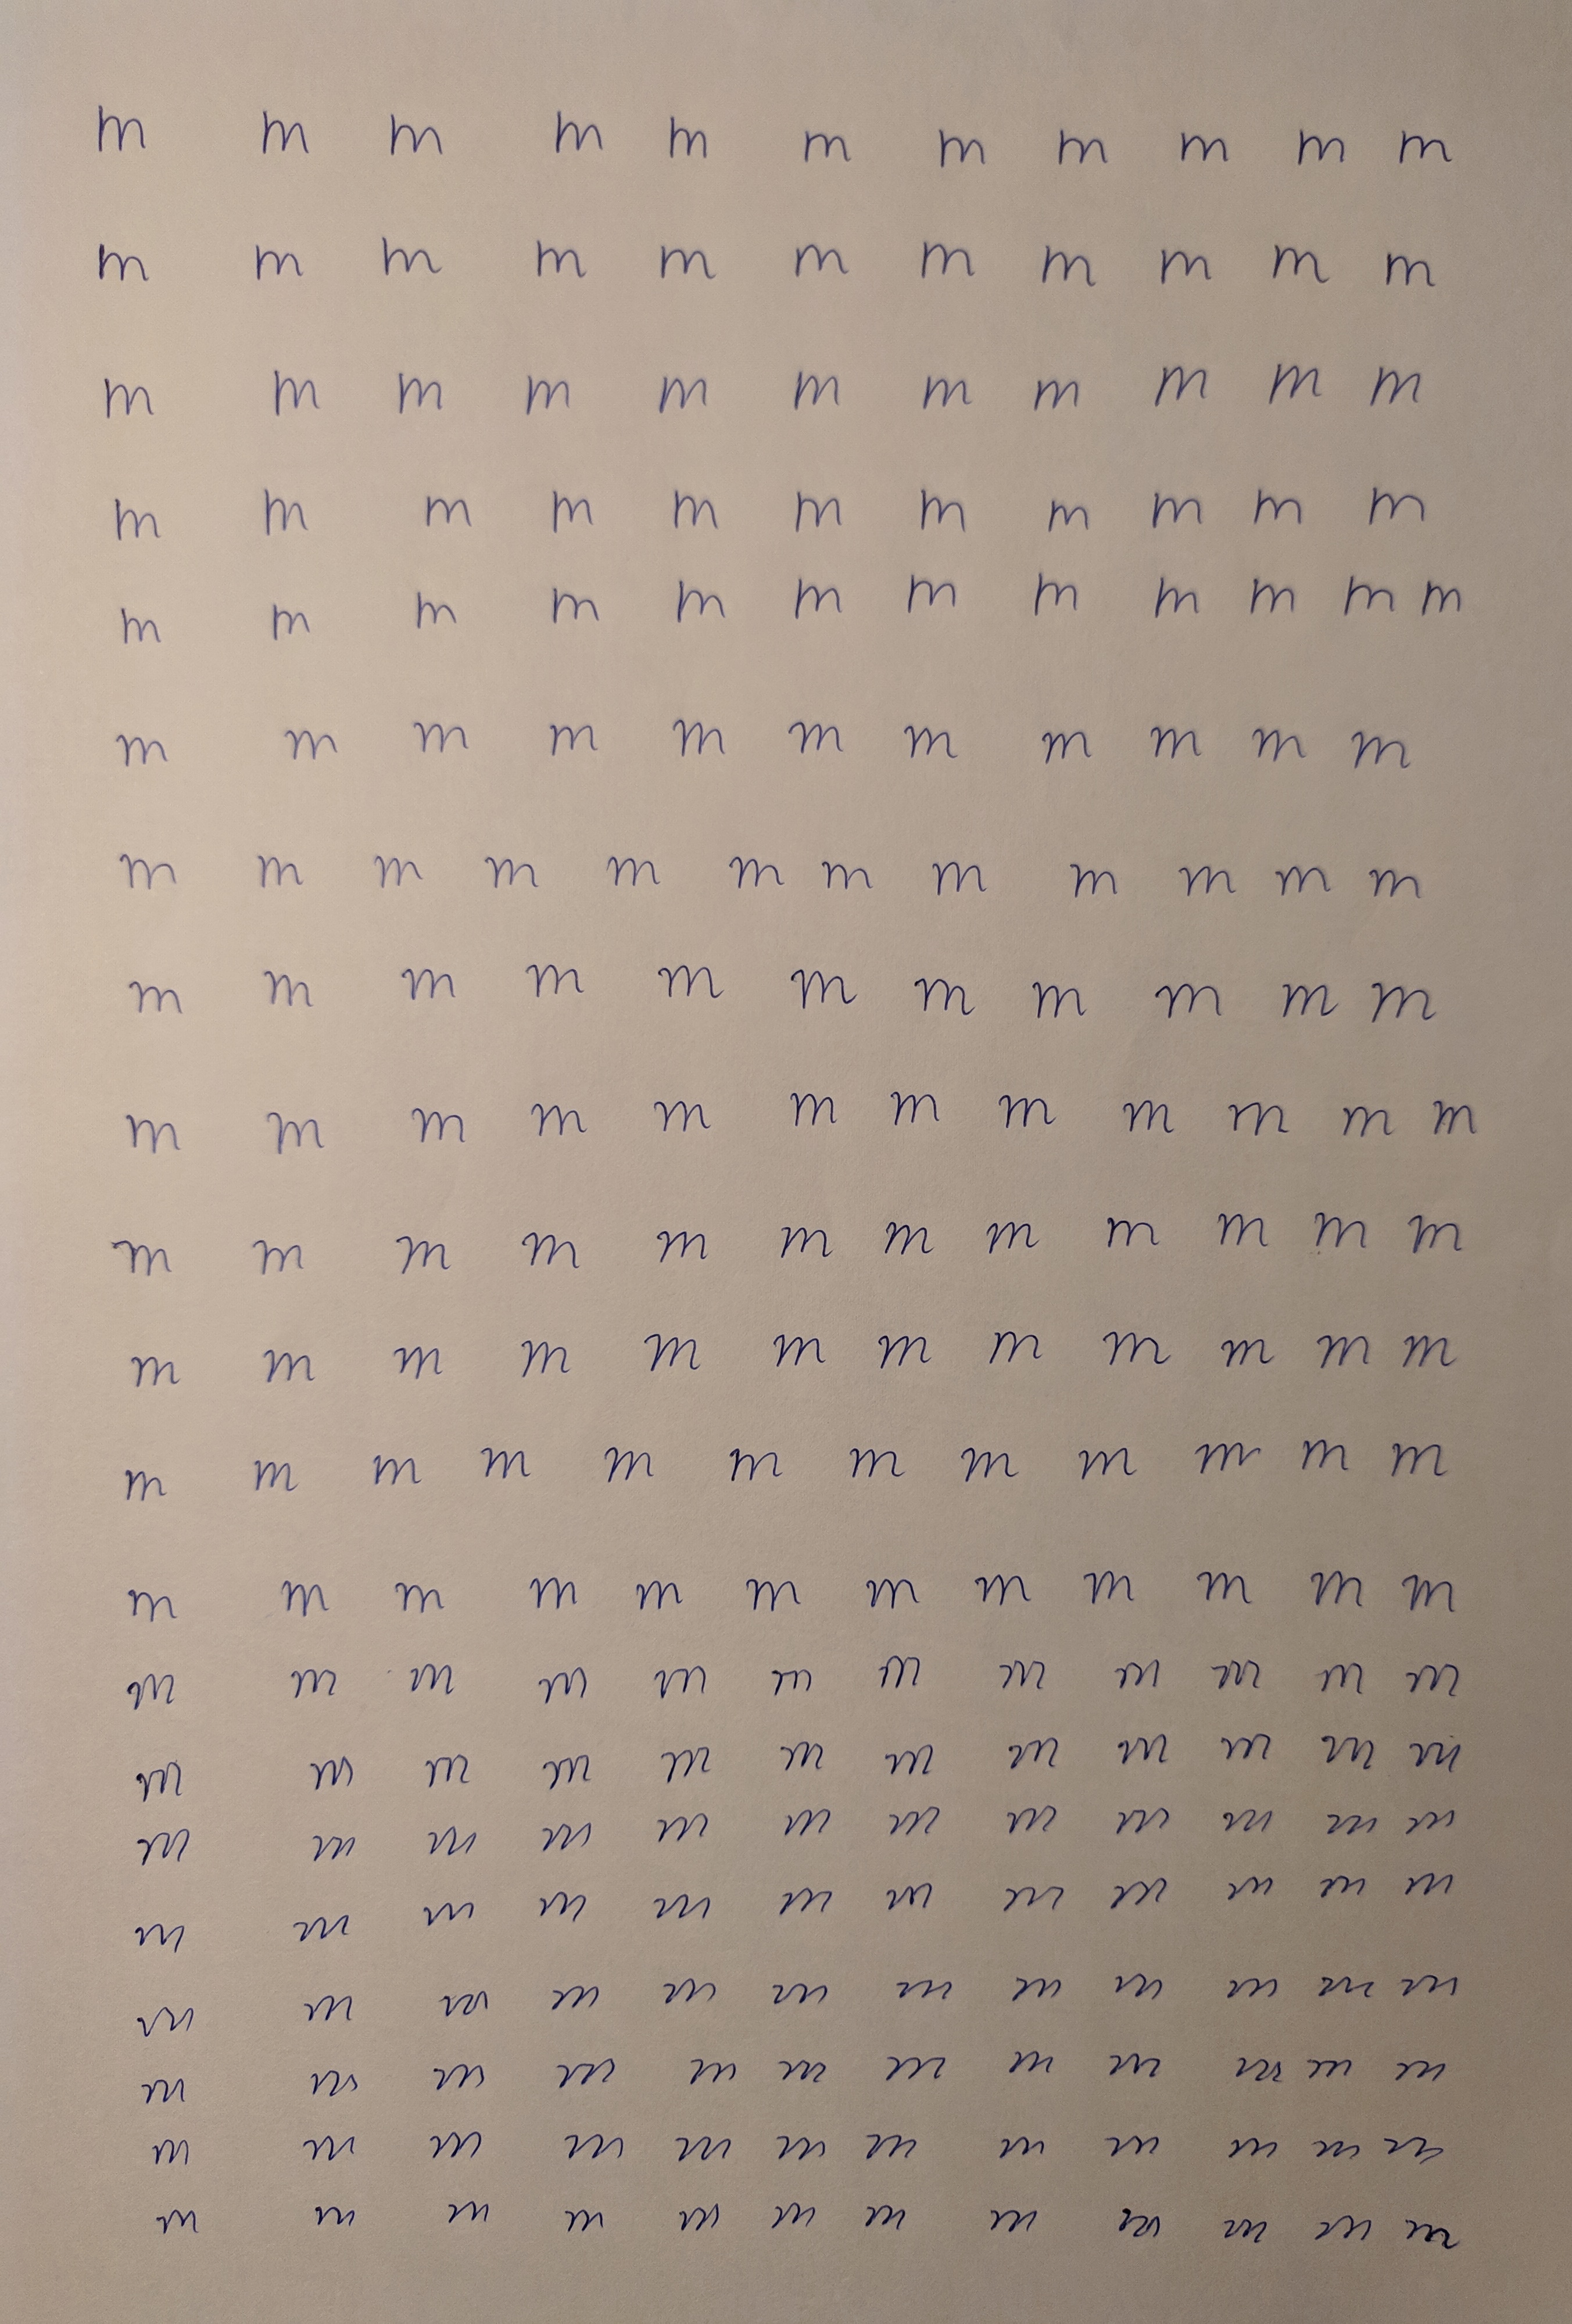 m m m m m m m m m m m
m m m m m m m m m m m
m m m m m m m m m m m
m m m m m m m m m m m
m m m m m m m m m m m m
m m m m m m m m m m m
m m m m m m m m m m m m
m m m m m m m m m m m
m m m m m m m m m m m m
m m m m m m m m m m m m
m m m m m m m m m m m m
m m m m m m m m m m m m
m m m m m m m m m m m m
m m m m m m m m m m m m
m m m m m m m m m m m m
m m m m m m m m m m m m
m m m m m m m m m m m m
m m m m m m m m m m m m
m m m m m m m m m m m m
m m m m m m m m m m m m
m m m m m m m m m m m m